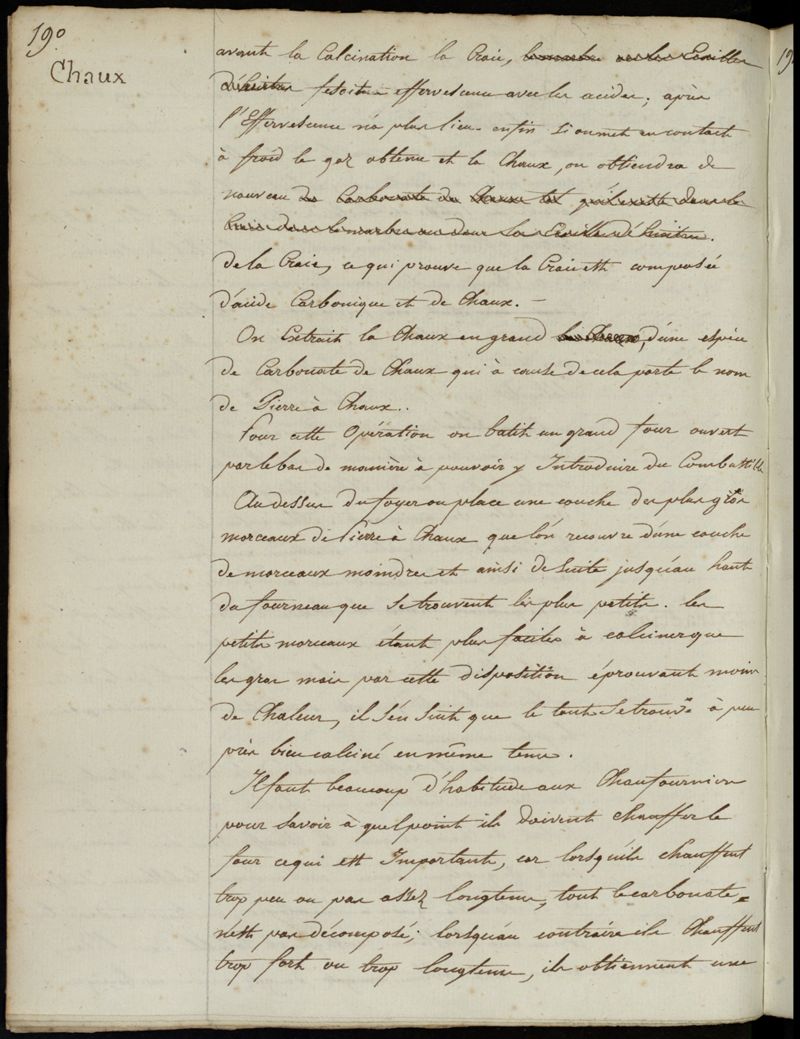 19º
Chaux
avant la Calcination la Craie, le marbre ou les Ecailles
d'huitres fesoit effervescence avec les acides; après
l'Effervescence n'a plus lieu. enfin si on met en contact
à froid le gaz obtenu et la Chaux, on obtiendra de
nouveau du Carbonate de Chaux tel qu'il existe dans la
Craie dans le marbre ou dans les Ecailles d'huitres.
de la Craie, ce qui prouve que la Craie est composée
d'acide Carbonique et de Chaux. —
On Extrait la Chaux en grand la Chaux, d'une espèce
de Carbonate de Chaux qui à cause de cela porte le nom
de Pierre à Chaux..
Pour cette Opération on batit un grand four ouvert
par le bas de manière à pouvoir y Introduire du Combustible
Au dessus du foyer on place une couche des plus gros
morceaux de Pierre à Chaux que l'on recouvre d'une couche
de morceaux moindres et ainsi de Suite jusqu'au haut
du fourneau que se trouvent les plus petits. les
petits morceaux étant plus faciles à calciner que
les gros mais par cette disposition éprouvant moins
de Chaleur, il s'en suit que le tout se trouve à peu
près bien calciné en même tems.
Il faut beaucoup d'habitude aux Chaufourniers
pour savoir à quel point ils doivent chauffer le
four ce qui est Important, car lorsqu'ils chauffent
trop peu ou pas assez longtems, tout le carbonate
n'est pas décomposé; lorsqu'au contraire ils Chauffent
trop fort ou trop longtems, ils obtiennent une